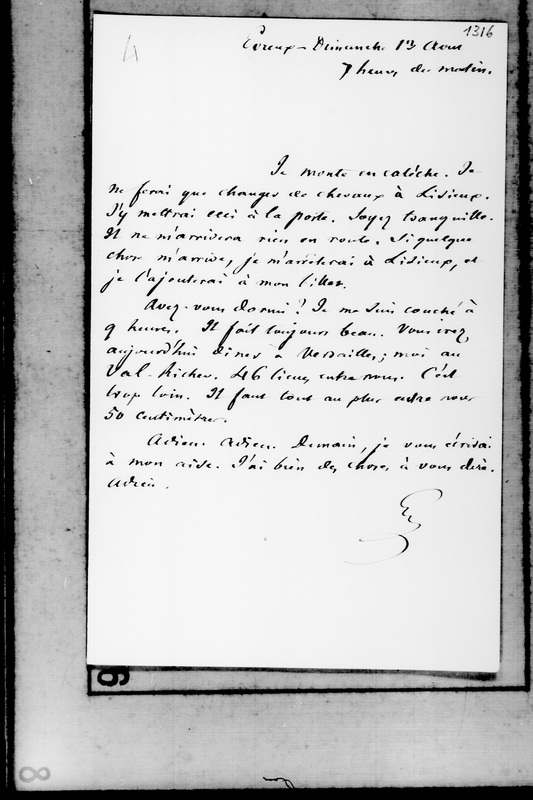 4
1316
Evreux - Dimanche 1er Août
7 heures du matin.
Je monte en calèche. Je
ne ferai que changer de chevaux à Lisieux.
J'y mettrai ceci à la poste. Soyez tranquille.
Il ne m'arrivera rien en route. Si quelque
chose m'arrive, je m'arrêterai à Lisieux, et
je l'ajouterai à mon billet.
Avez-vous dormi ? Je me suis couché à
9 heures. Il fait toujours beau. Vous irez
aujourd'hui dîner à Versailles ; moi au
Val-Richer. 46 lieues entre nous. C'est
trop loin. Il faut tout au plus entre nous
50 centimètres.
Adieu. Adieu. Demain, je vous écrirai
à mon aise. J'ai bien des choses à vous dire.
Adieu.
9
8